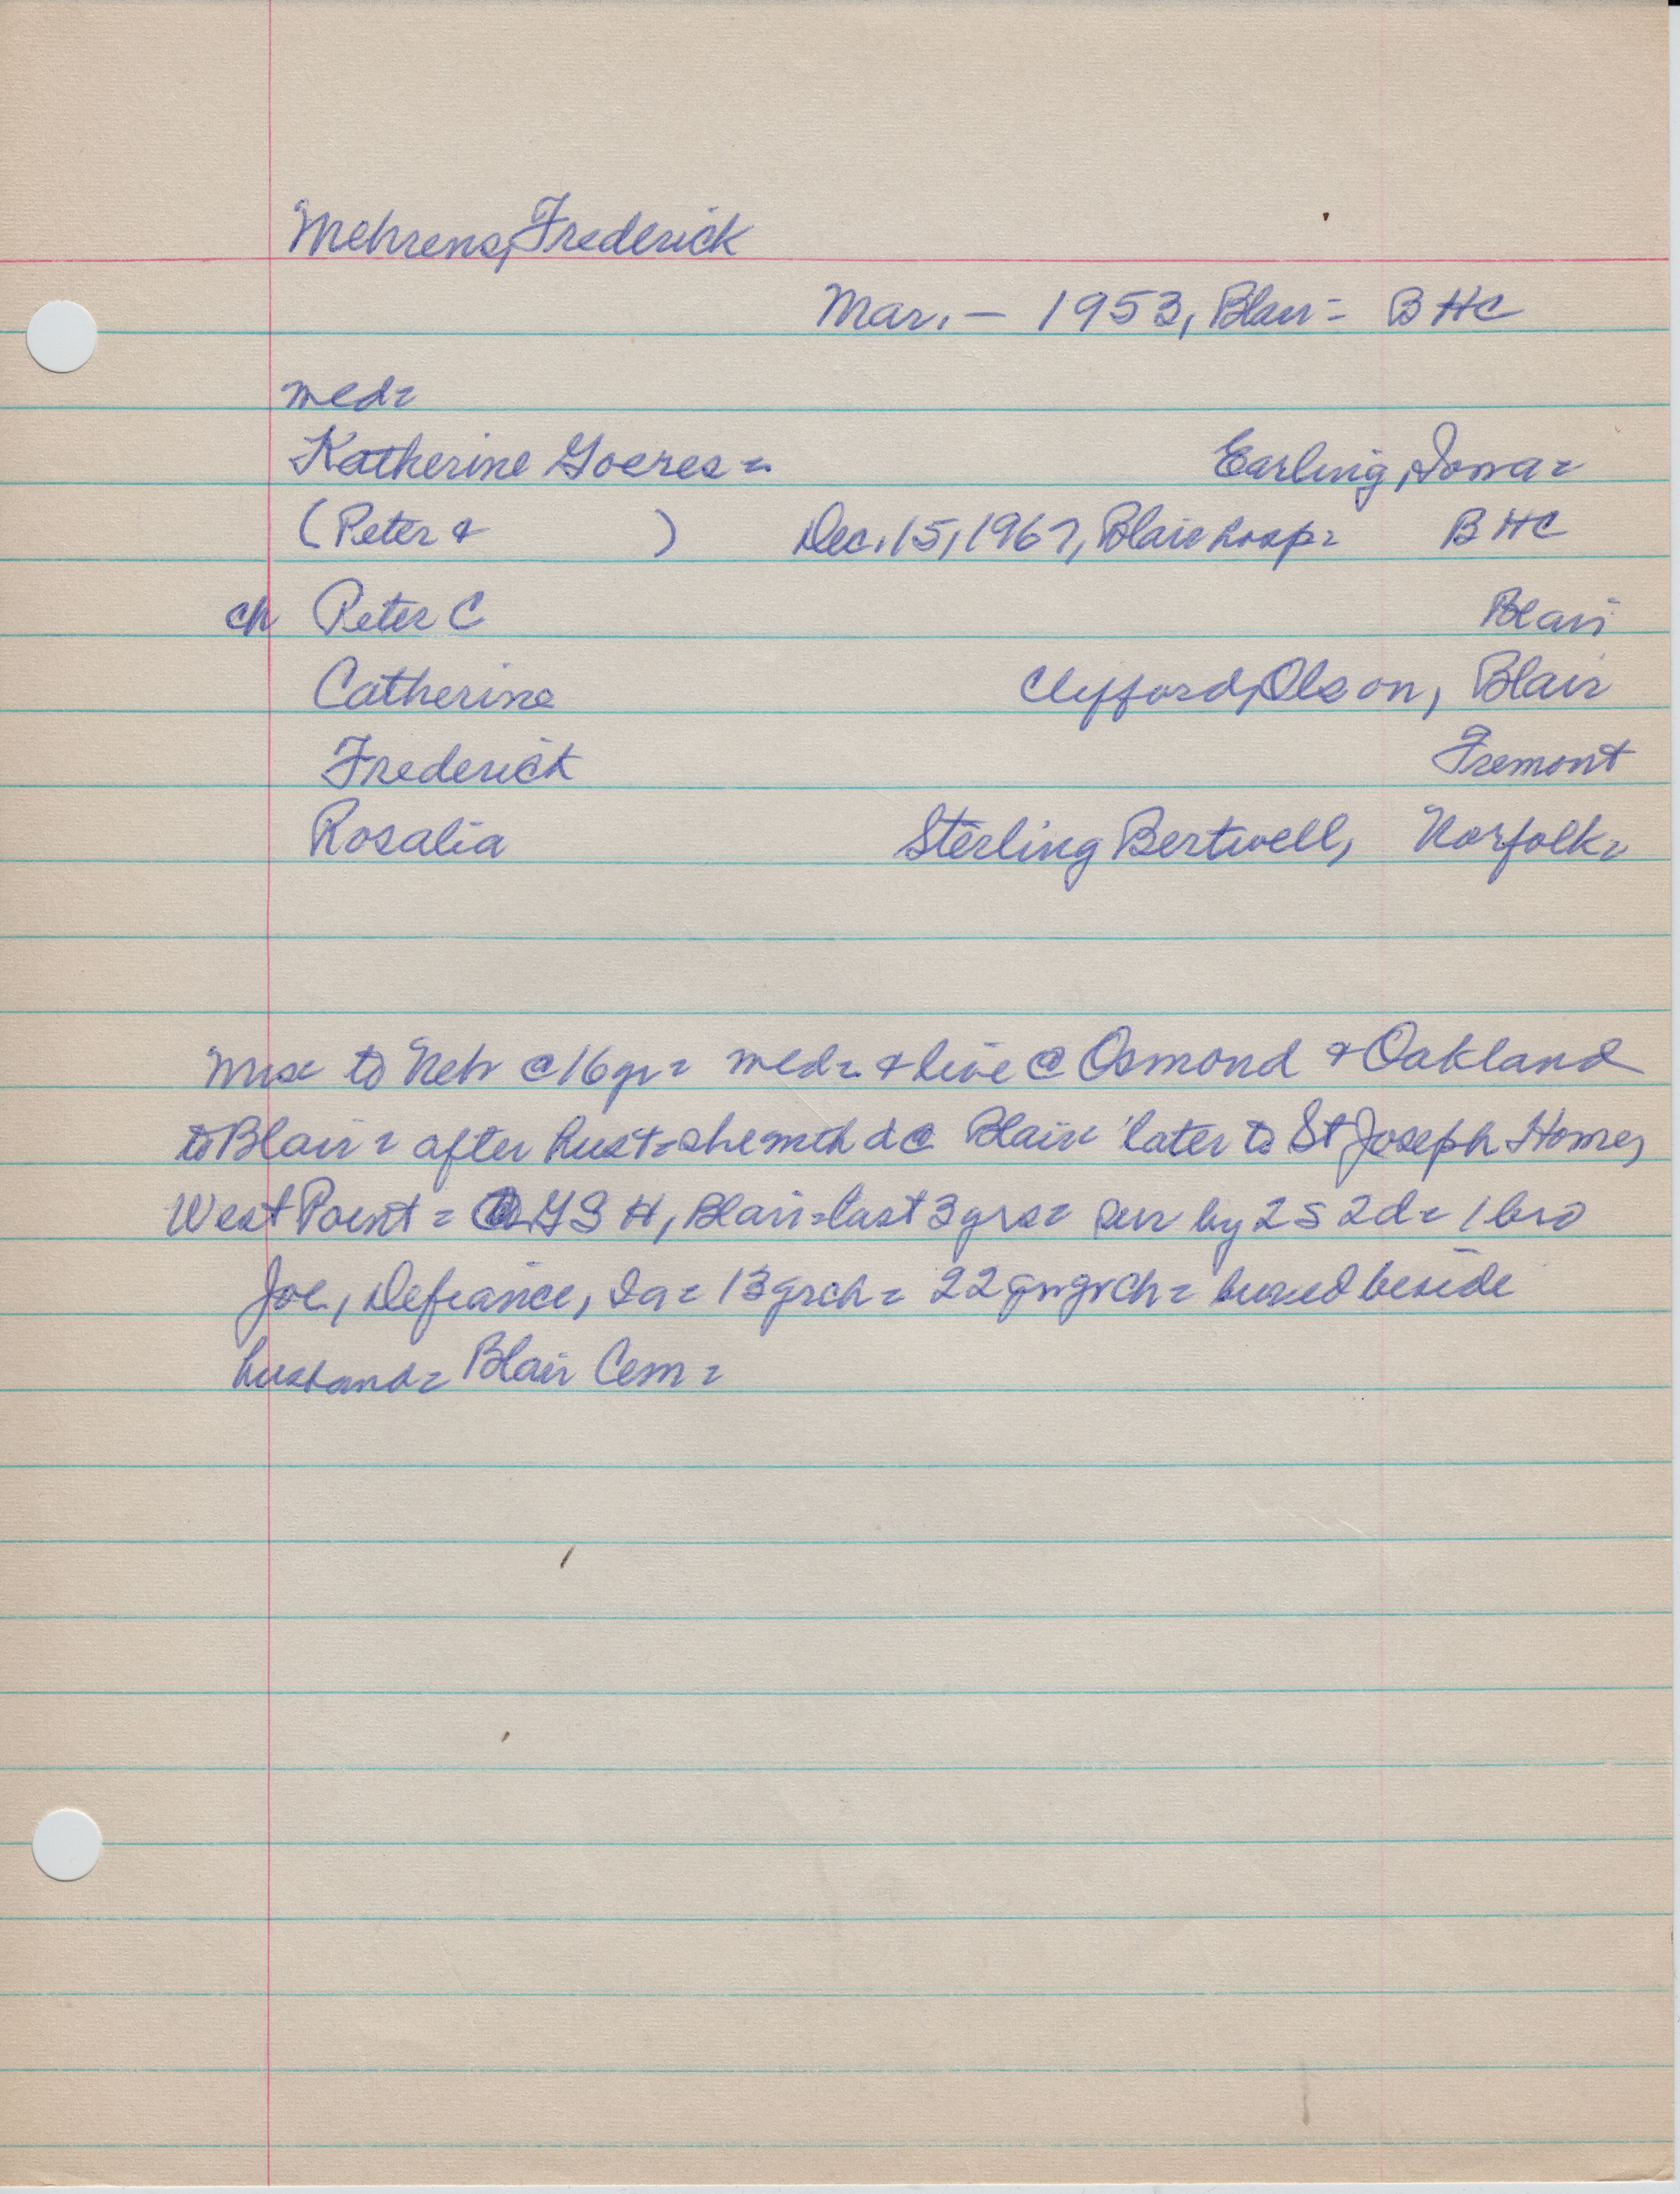 Mehrens, Frederick
Mar. — 1953, Blair = BHC
med =
Katherine Goeres = Earling, Iowa =
(Peter & ) Dec. 15, 1967, Blair hosp = BHC
ch Peter C Blair
Catherine Clifford Olson, Blair
Frederick Fremont
Rosalia Sterling Bertwell, Norfolk =
to Neb @ 16 yr = med = & live @ Osmond & Oakland
to Blair = after hust = she @ Blair later to St Joseph Home,
West Point = GSH, Blair = last 3 yrs = sur by 2 S 2 d = 1 bro
Joe, Defiance, Ia = 13 grch = 22 grgrch = buried beside
husband = Blair Cem =